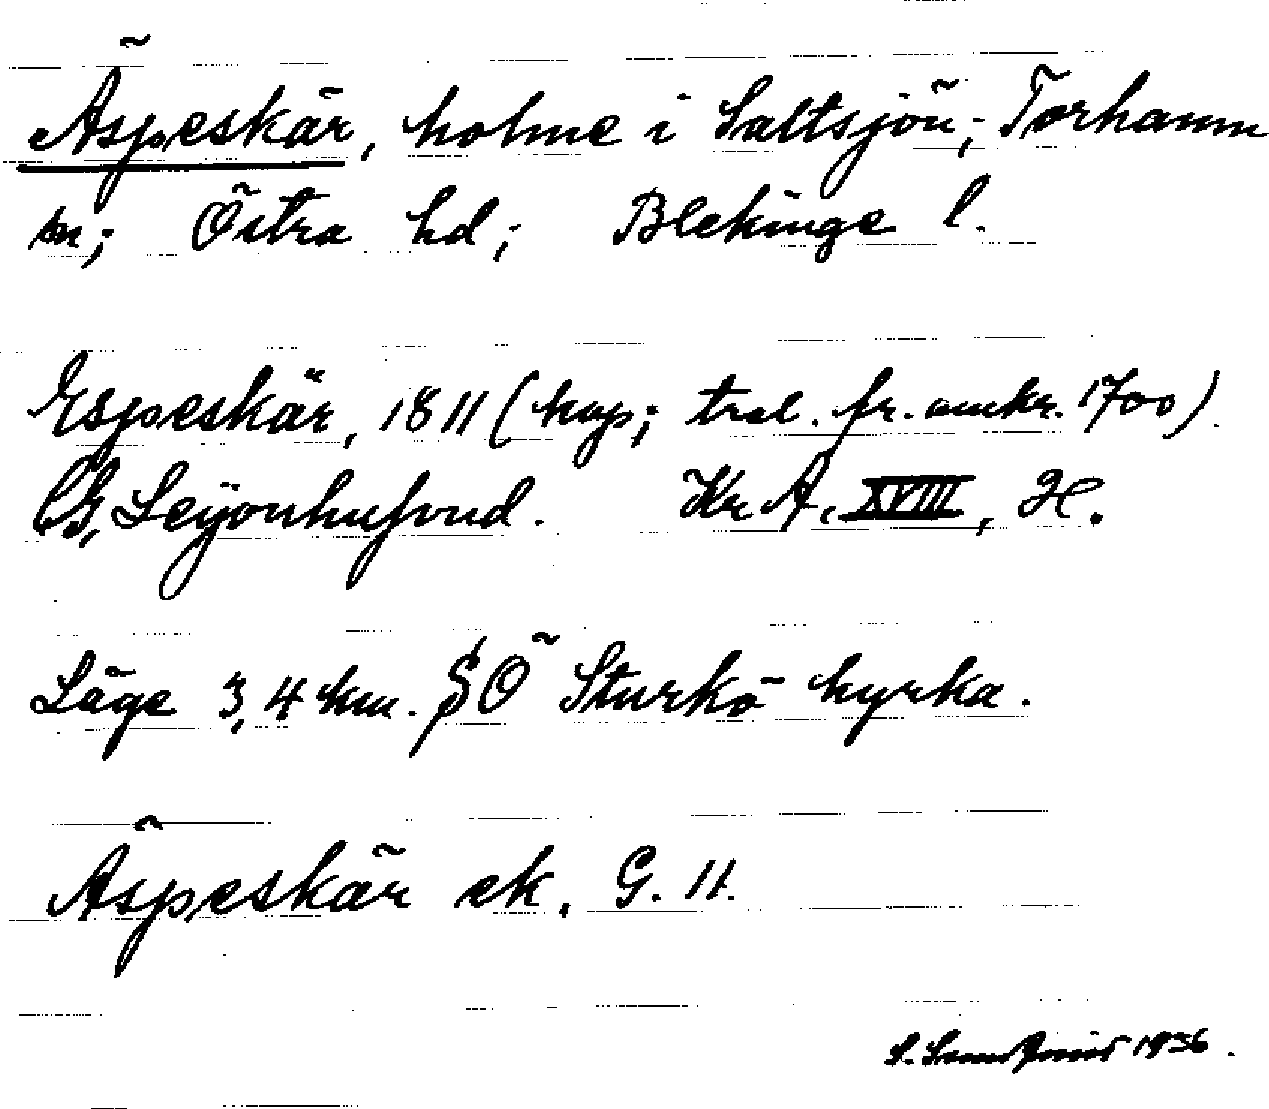 Äspeskär, holme i Saltsjön; Torhamn
sn; Östra hd; Blekinge l.
Espeskär, 1811 (kop; trol. fr. omkr. 1700).
CG, Leijonhufvud. Kr A, XVIII, H.
Läge 3,4 km. SÖ Sturkö kyrka.
Äspeskär ek. G. 11.
S. 1936.